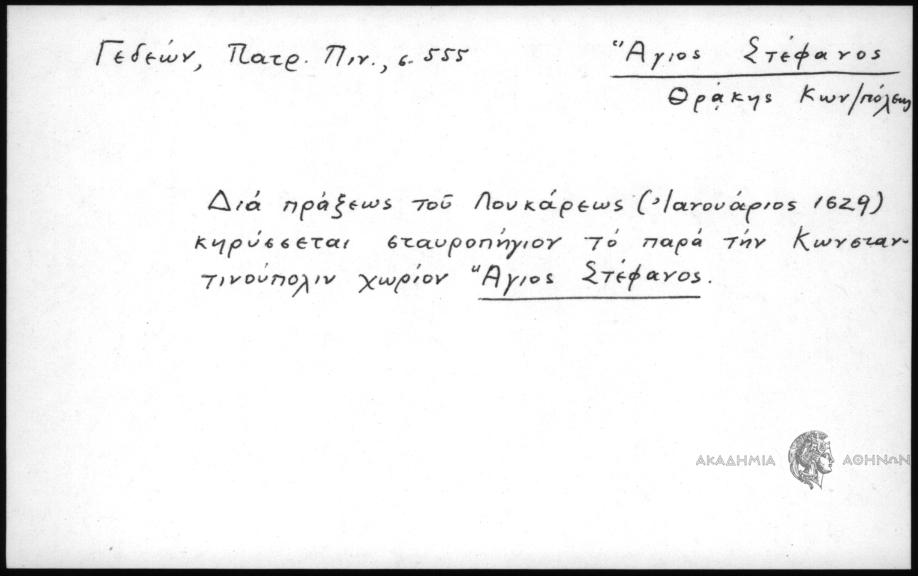 Γεδεών, Πατρ. Πιν., σ. 555
Ἅγιος Στέφανος
Θρᾴκης Κων/πόλεως
Διά πράξεως τοῦ Λουκάρεως (Ἰανουάριος 1629)
κηρύσσεται σταυροπήγιον τό παρά τήν Κωνσταν-
τινούπολιν χωρίον Ἅγιος Στέφανος.
ΑΚΑΔΗΜΙΑ ΑΘΗΝΩΝ